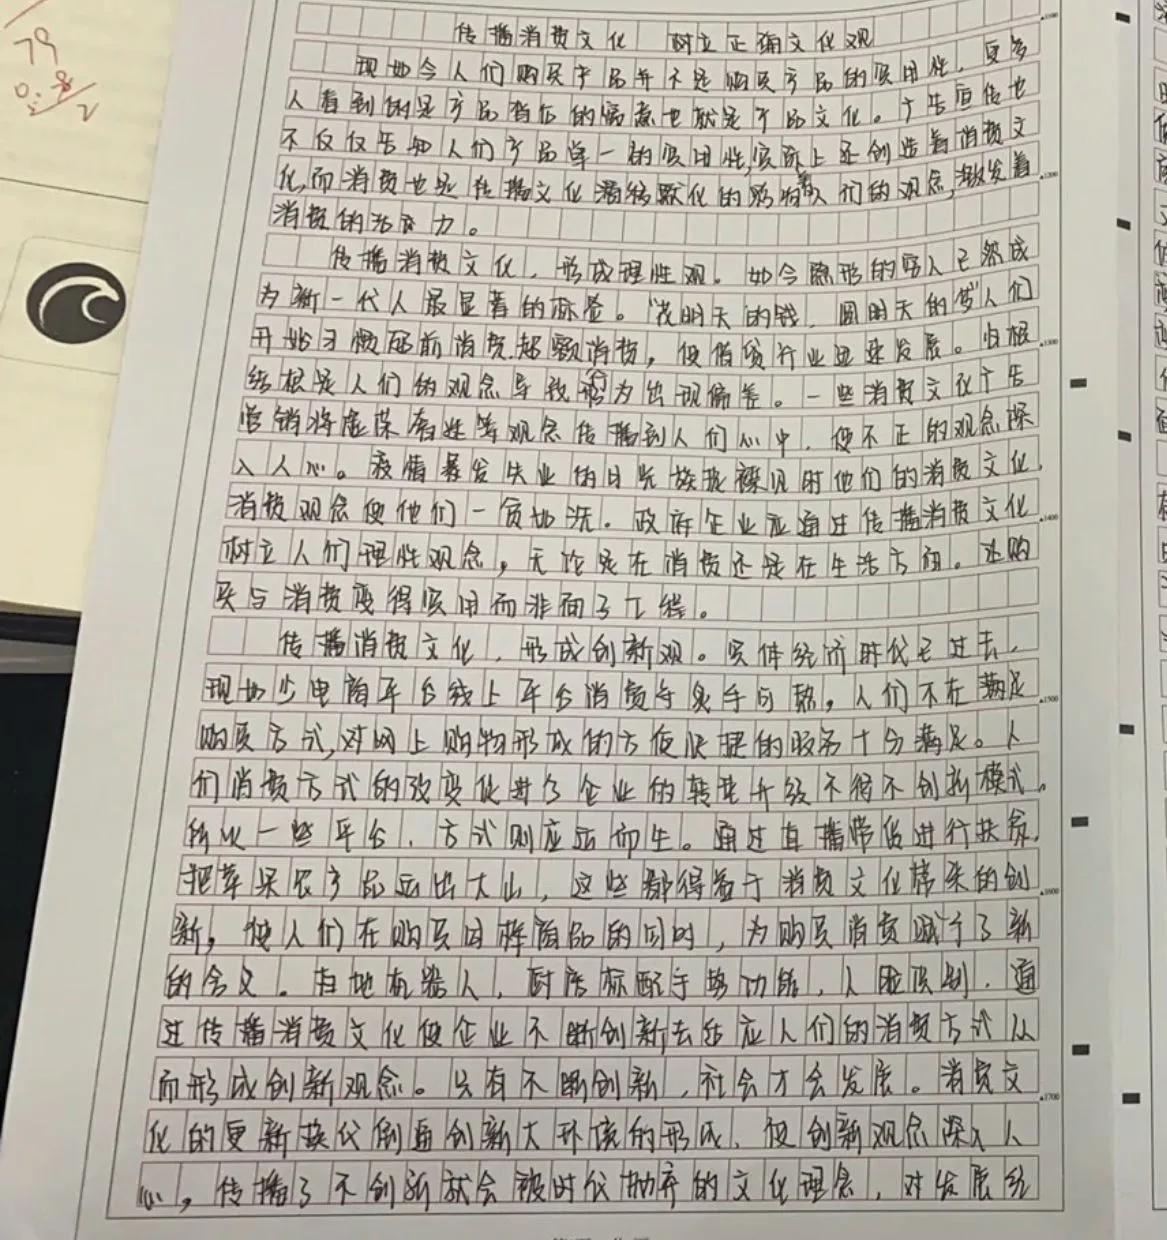 79
0.8
2
传播消费文化 树立正确文化观
现如今人们购买产品并不是购买产品的实用性，更多
人看到的是产品背后的寓意也就是产品文化。广告宣传也
不仅仅告知人们产品单一的实用性,实际上还创造着消费文
化,而消费也是在播文化潜移默化的影响着人们的观念,激发着
消费的活力。
传播消费文化，形成理性观。如今隐形的穷人已然成
为新一代人最显著的标签。“花明天的钱，圆明天的梦”人们
开始习惯超前消费,超额消费，使借贷行业迅速发展。归根
结根是人们的观念导致行为出现偏差。一些消费文化广告
营销将虚荣奢姓等观念传播到人们心中，使不正的观念深
入人心。疫情暴发失业的月光族捉襟见时他们的消费文化,
消费观念使他们一贫如洗。政府企业应通过传播消费文化
树立人们理性观念，无论是在消费还是在生活方面。让购
买与消费变得实用而非面子工程。
传播消费文化，形成创新观。实体经济时代已过去，
现如今电商平台线上平台消费等炙手可热，人们不在满足
购买方式,对网上购物形成的方便快捷的服务十分满足。人
们消费方式的改变促进了企业的转型升级不得不创新模式。
所以一些平台，方式则应运而生。通过直播带货进行扶贫,
把苹果农产品运出大山，这些都得益于消费文化带来的创
新，使人们在购买同样商品的同时，为购买消费赋予了新
的含义。扫地机器人，耐克标配手势功能，人脸识别，通
过传播消费文化使企业不断创新去适应人们的消费方式从
而形成创新观念。只有不断创新，社会才会发展。消费文
化的更新换代倒逼创新大环境的形成，使创新观念深入人
心，传播了不创新就会被时代抛弃的文化理念，对发展经